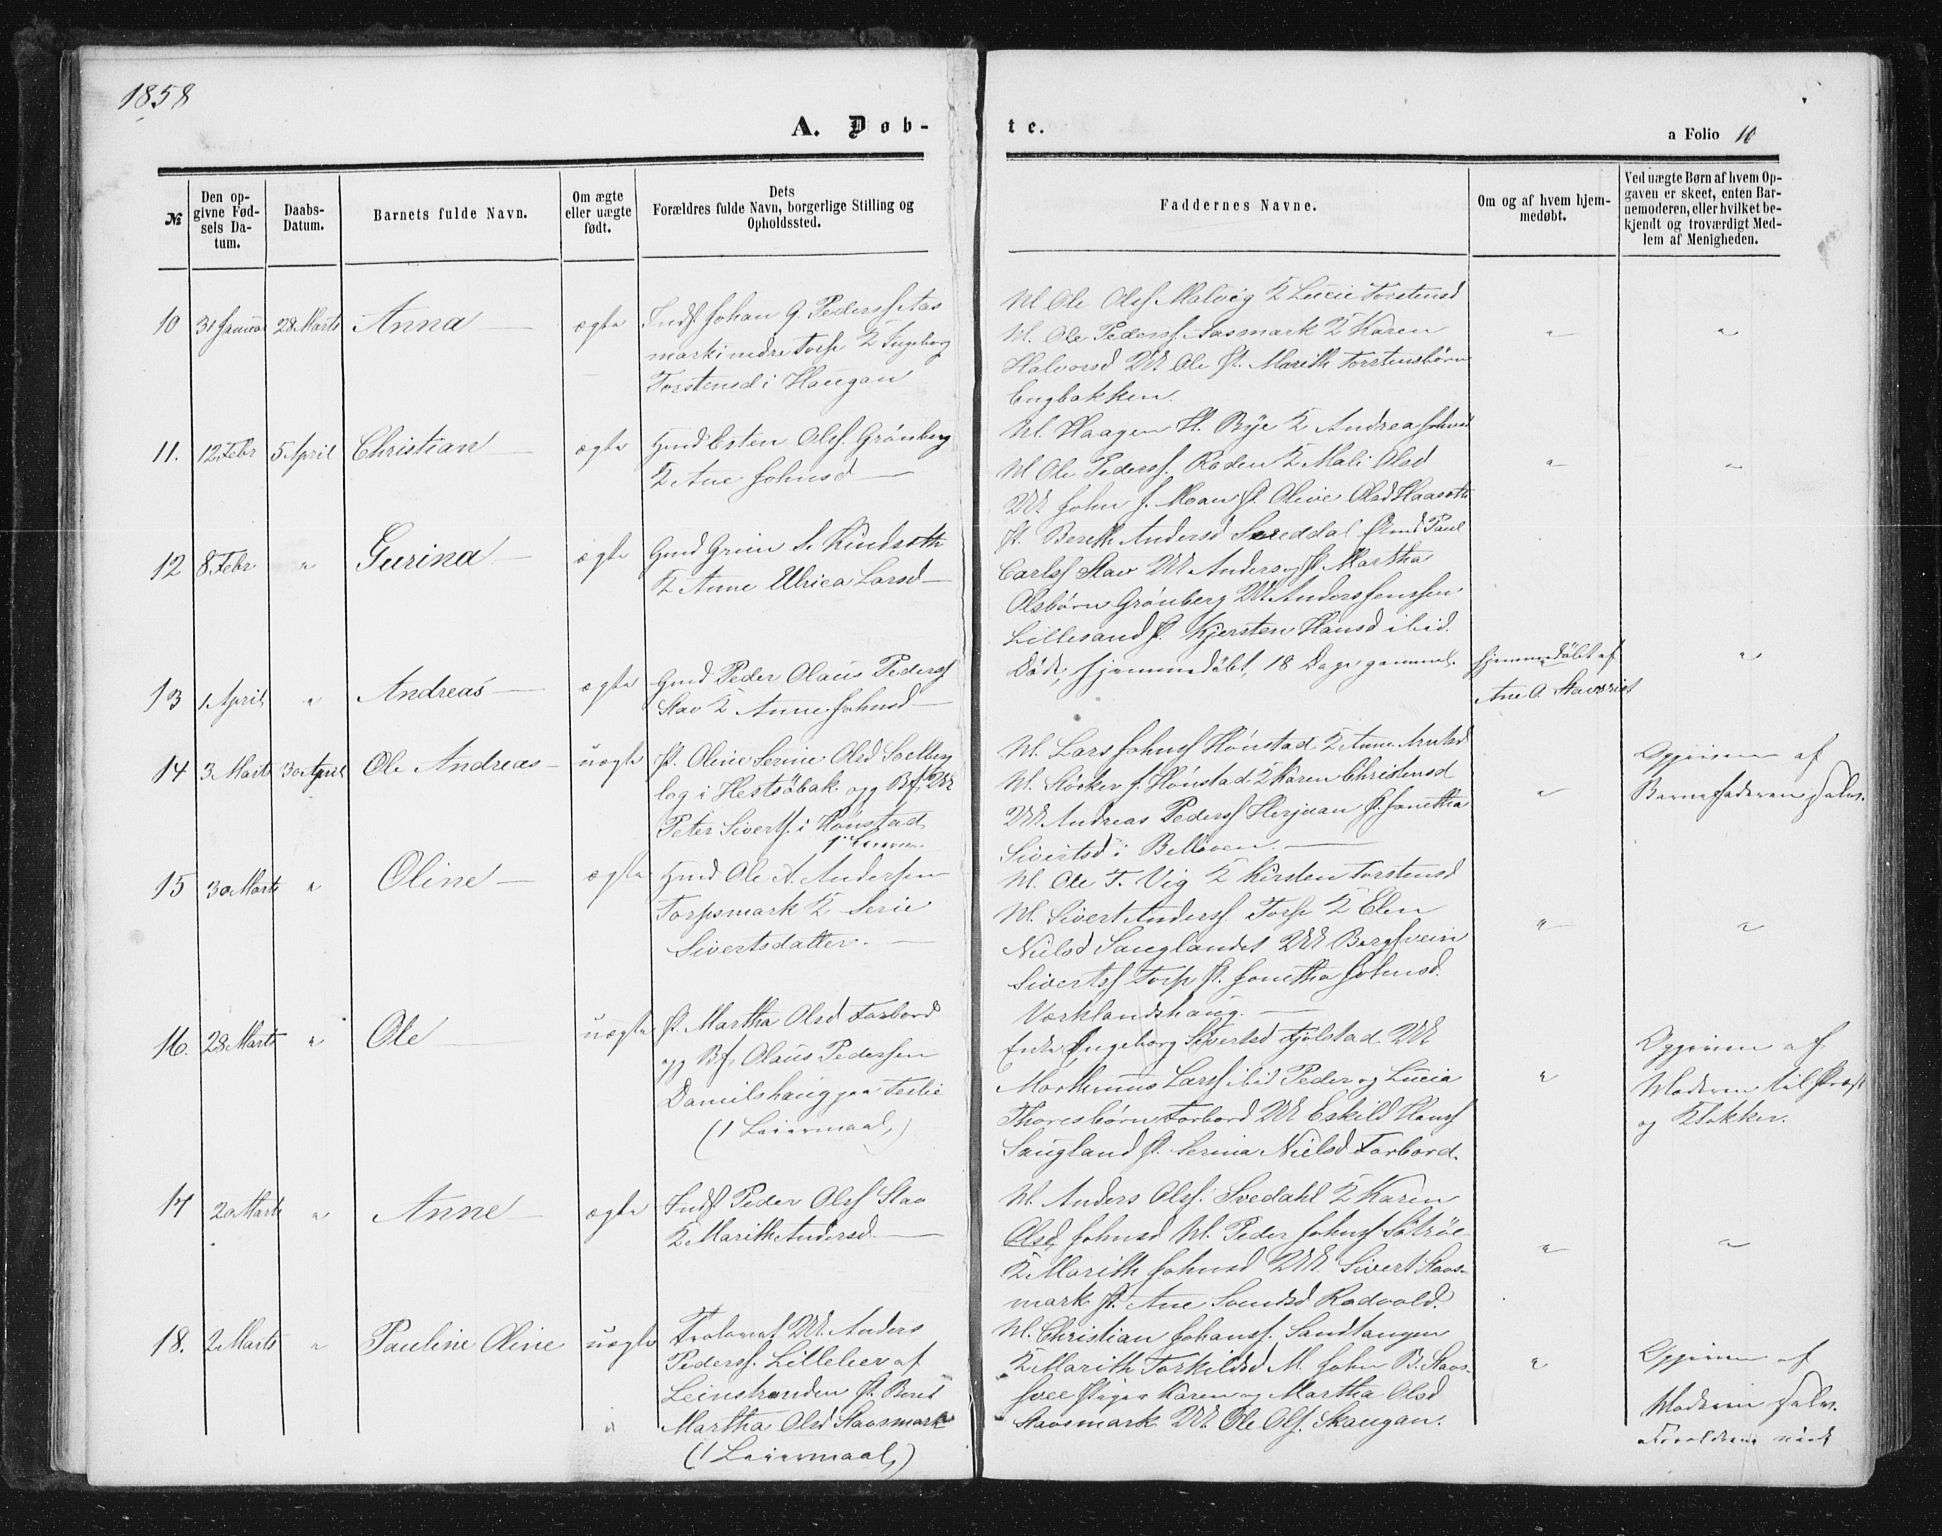 1858
A. Døb-
te.
a Folio 10
№
Den op-
givne Fød-
sels Da-
tum.
Daabs-
Datum.
Barnets fulde Navn.
Om ægte
eller uægte
født.
Dets
Forældres fulde Navn, borgerlige Stilling og
Opholdssted.
Faddernes Navne.
Om og af hvem hjem-
medøbt.
Ved uægte Børn af hvem Op-
gaven er skeet, enten Bar-
nemoderen, eller hvilket be-
kjendt og troværdigt Med-
lem af Menigheden.
10 31 Januar 28 Marts Anna ægte
Inds Johan G. Pederss Aas
mark indre Torp K Ingeborg
Torstensd i Haugan
M. Ole Olss Malvig K Lucie Torstensd
M. Ole Pederss. Aasmark K Karen
Halvorsd UK Ole P. Marith Torstensbørn
Engbakken.
11. 12 Febr 5 April Christian ægte
Gmd Esten Olss. Grønberg
K Ane Johnsd
M. Haagen H. Bye K Andrea Johnsd
M Ole Pederss. Roden K Mali Olsd
UK John J. Moan P. Olive Olsd
12 8 Febr " Gurina ægte
Gmd
K Anne Ulrica Larsd
P. Bereth Andersd Gmd Paul
Carlss Stav UK Anders og P. Martha
Olsbørn Grønberg UK Anders Jenssen
Lillesand P. Kjersten Hansd ibid.
13 1 April " Andreas ægte
Gmd Peder Olaus Pederss
Stav K Anne Johnsd
Død, hjemmedøbt, 18 Dage gammel.
hjemmedøbt af
Ane O.
14 3 Marts 30 April Ole Andreas uægte
P. Oline Serine Olsd Solberg
log i Hestsjøbak og Bf. UK
Peter Siverts. i Hønstad
M. Lars Johnss Hønstad K Anne
M. Størker J. Hønstad K Karen Christensd
UK Andreas Pederss Herjuan P. Jonetha
Sivertsd i
Opgiven af
Barnefaderen selv.
15 30 Marts " Oline ægte
Gmd Ole A. Andersen
Torpsmark K Serie
Sivertsdatter.
M. Ole T. Vig K Kirsten Torstensd
M. Sivert Anderss. Torp K Elen
Nielsd Sauglandet UK Bergsvein
Sivertss Torp P. Jonetha Johnsd.
16. 28 Marts " Ole uægte
P. Martha Olsd Forbord
og Bf. Olaus Pedersen
Danielshaug paa
(1 Leiermaal,)
Enke Ingeborg Sivertsd Fjølstad UK
Morthinus Larss ibid Peder og Lucia
Thoresbørn Forbord UK Eskild Hanss
Saugland P. Serina Nielsd Forbord.
Opgiven af
Moderen til Præst
og Klokker.
17 20 Marts " Anne ægte
Inds Peder Olss Stav
K Marith Andersd
M. Anders Olss. Svedahl K Karen
Olsd Johnsd M. Peder Johnss Sætrøe
K Marith Johnsd UK Sivert Stavs-
mark P. Ane
18. 2 Marts " Pauline Oline uægte
UK Anders
Pederss. Lilleløev af
Leinstranden P. Beret
Martha Olsd Stavsmark
(1 Leiermaal,)
M. Christian Johanss. Sandtangen
K Marith Torkildsd M. John B. Stavs-
Piger Karen og Martha Olsd
Stavsmark UK Ole Ols. Skaugan.
Opgiven af
Moderen selv.